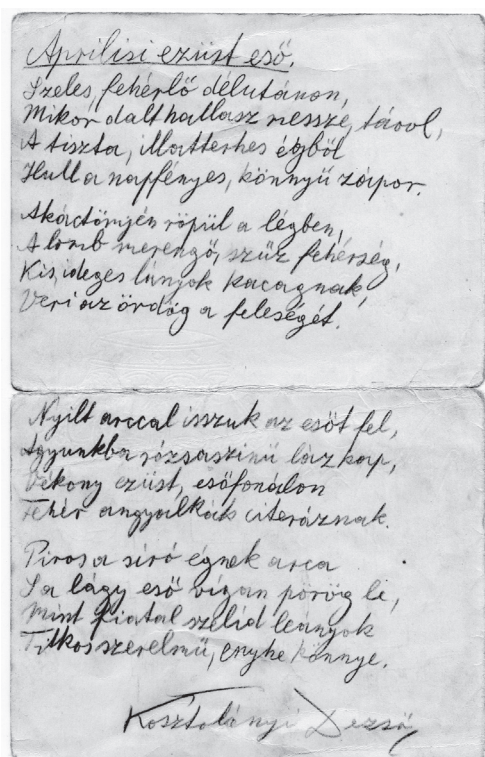 Áprilisi ezüst eső.
Szeles, fehérlő délutánon,
Mikor dalt hallasz messze, távol,
A tiszta, illatterhes égből
Hull a napfényes, könnyű zápor.
Akáctömjén röpül a légben,
A lomb merengő, szűz fehérség,
Kis, ideges lányok kacagnak,
Veri az ördög a feleségét.
Nyilt arccal isszuk az esőt fel,
Agyunkba rózsaszinű láz kap,
Vékony ezüst, esőfonálon
Fehér angyalkák citeráznak.
Piros a síró égnek arca
S a lágy eső vígan pörög le,
Mint fiatal szelíd leányok
Titkos szerelmű, enyhe könnye.
Kosztolányi Dezső